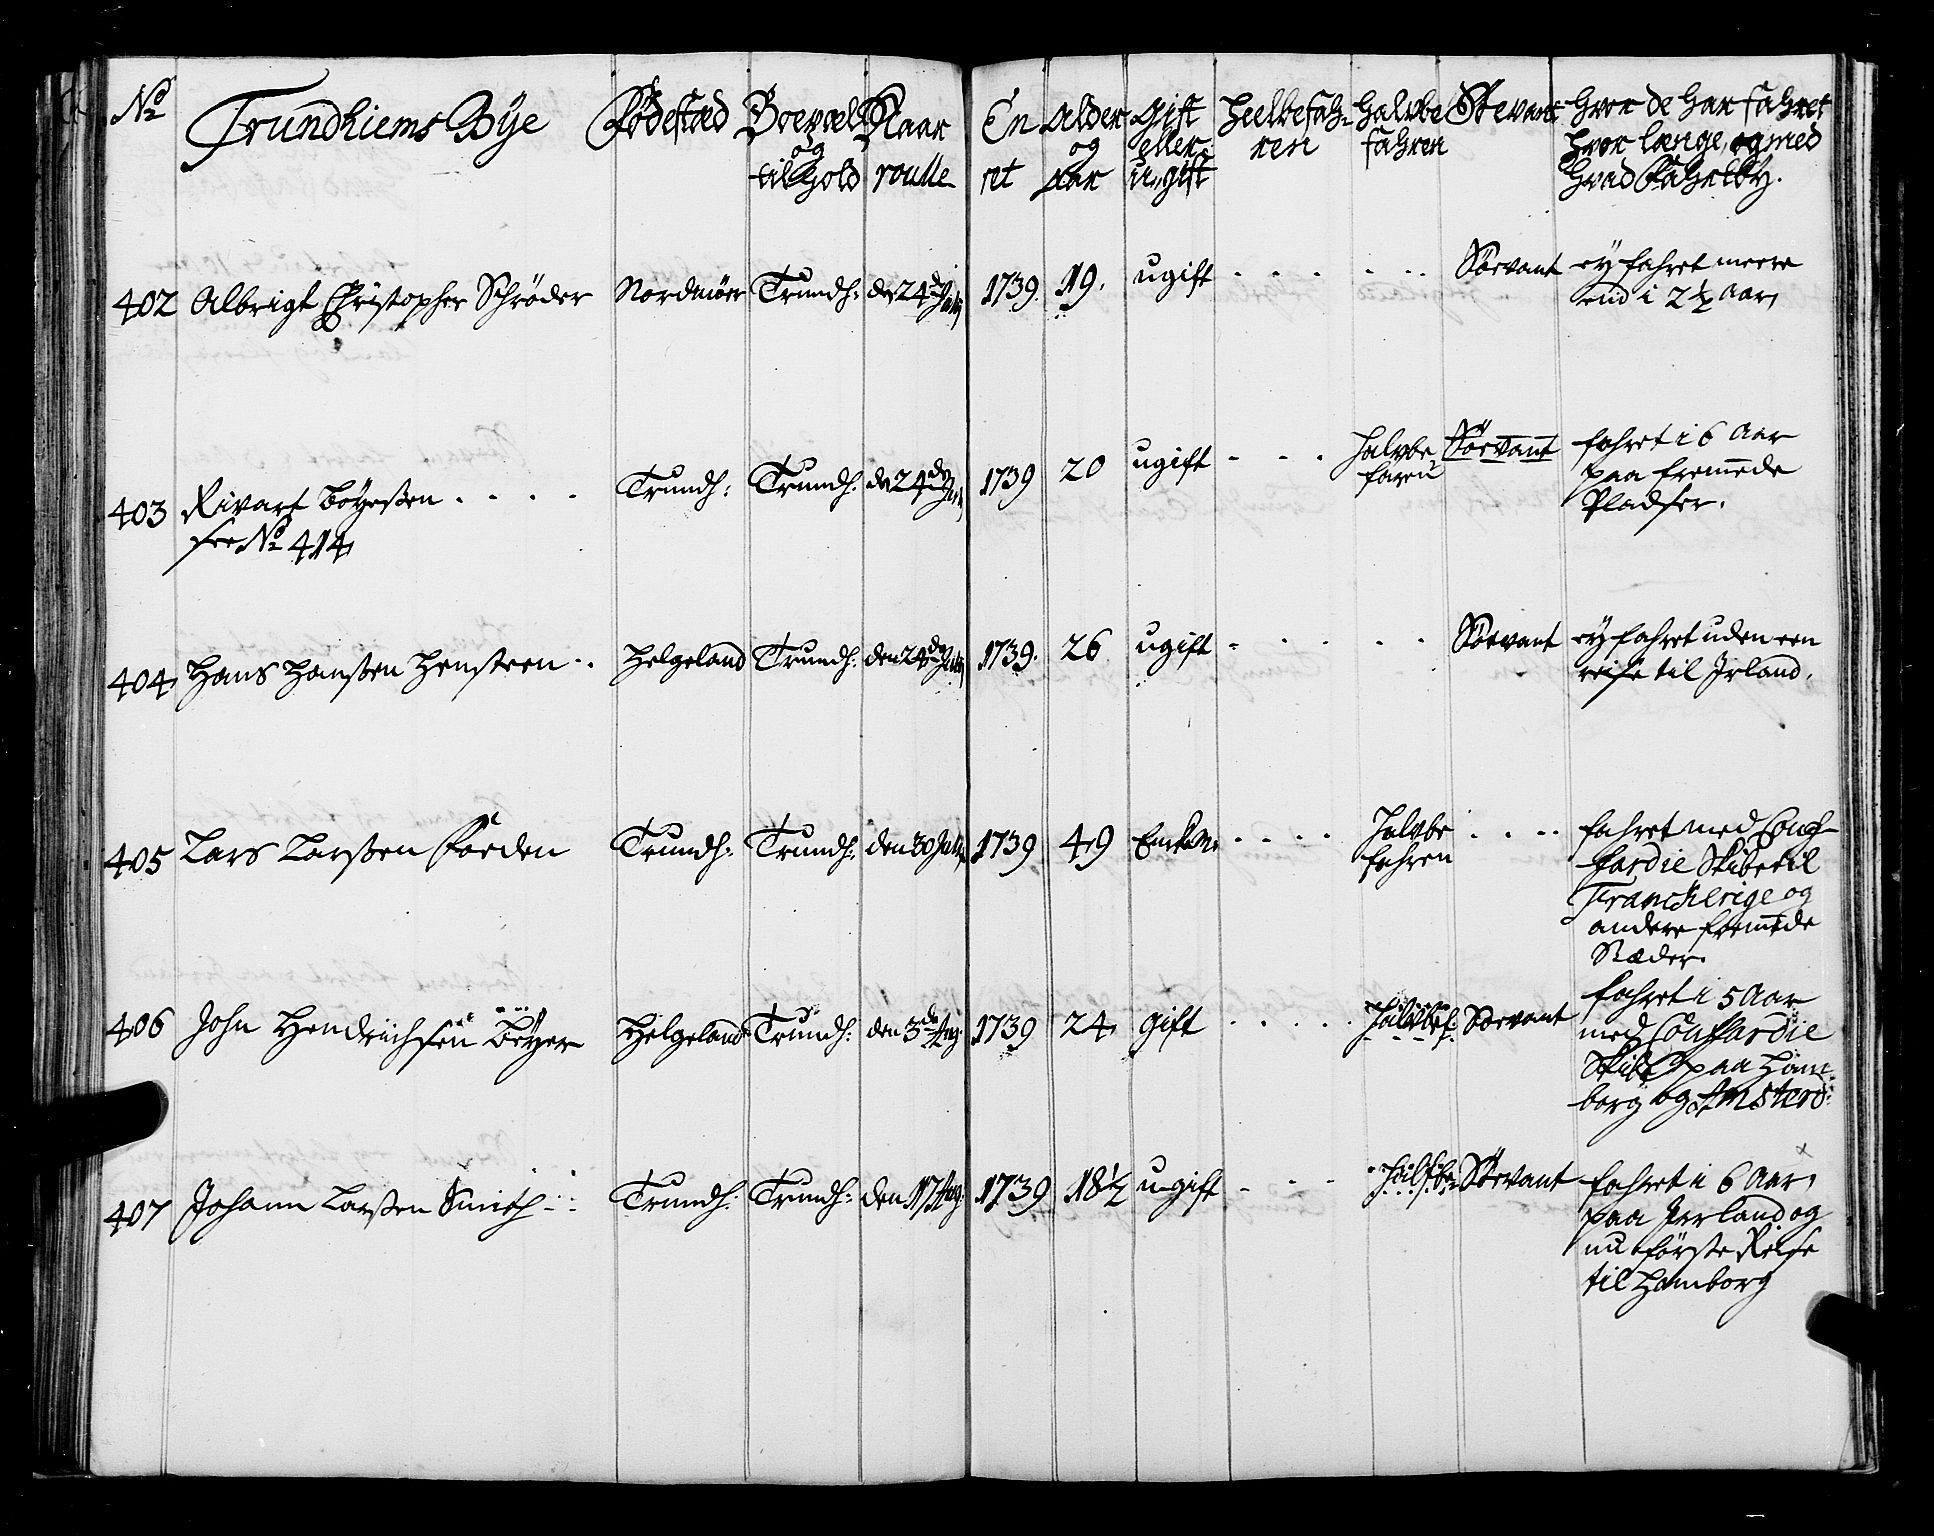 No Trundhiems Bÿe Födestæd Boepæl og tilhold Naar roulle En ret Alder og aar Gift eller u,gift Heelbefahren Halvbefahren Söevant Hvor de har fahret hvor længe, og med hvad Fahrtöy.
402 Albrigt Christopher Schrøder Nordmöer Trundh: de 24de July 1739. 19. ugift - - - - - - Söevant ey fahret meere
end i 2½ Aar,
403 Rivart Böyesßen . . . . Trundh: Trundh: de 24de July 1739 20 ugift - - - Halvbe Söevant fahret i 6 Aar
see No 414, faren paa fremmede
Pladser.
404 Hans Hanßen Hensteen . . Helgeland Trundh: den 24de July 1739. 26 ugift - - - - - Söevant ey fahret uden een
reise til Irland.
405 Lars Larßen Trundh: Trundh: den 30 July 1739 49 Enkm: - - - - Halvbe . . . . fahret med Couf-
fahren fardie Skibe til
Franckerige og
andere fremmede
Stæder.
406 John Hendrichsen Beyer Helgeland Trundh: den 3de Aug 1739 24 gift . . . . . Halvbef: Söevant fahret i 5 Aar
med Couffardie
Skibe paa Ham-
borg og Amsterd:
407 Johann Larßen Smith - . . Trundh: Trundh: den 17 Aug 1739 18½ u-gift - - - Halfbe- Söevant fahret i 6 Aar,
paa Irrland og
nu förste Reise
til Hamborg